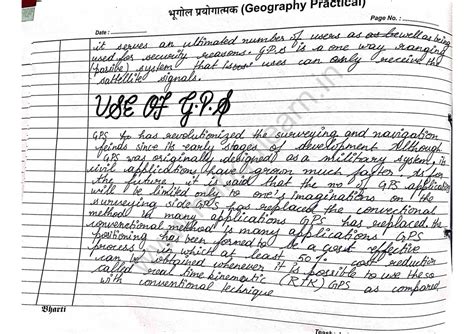 भूगोल प्रयोगात्मक (Geography Practical)
Page No. :
Date :
it serves an ultimated number of users as as well as being
used for security reasons. G.P.S is a one way ranging
(passive) system that uses can only receive the
sattellite signals.
USE OF G.P.S
GPS has revolutionized the surveying and navigation
feinds since its early stages of development Although
GPS was originally designed as a military system, its
civil applications have grown much faster. As for
the future, it is said that the no of GPS application
will be limited only to one's imaginations on the
surveying side GPS has replaced the convectional
method in many applications GPS has replaced the
conventional method is many applications GPS
positioning has been formed to be a cost effective
process in which at least 50% cost reduction
can be obtained whenever it is possible to use these
called real time kinematic (RTK) GPS as compared
with conventional technique
Bharti